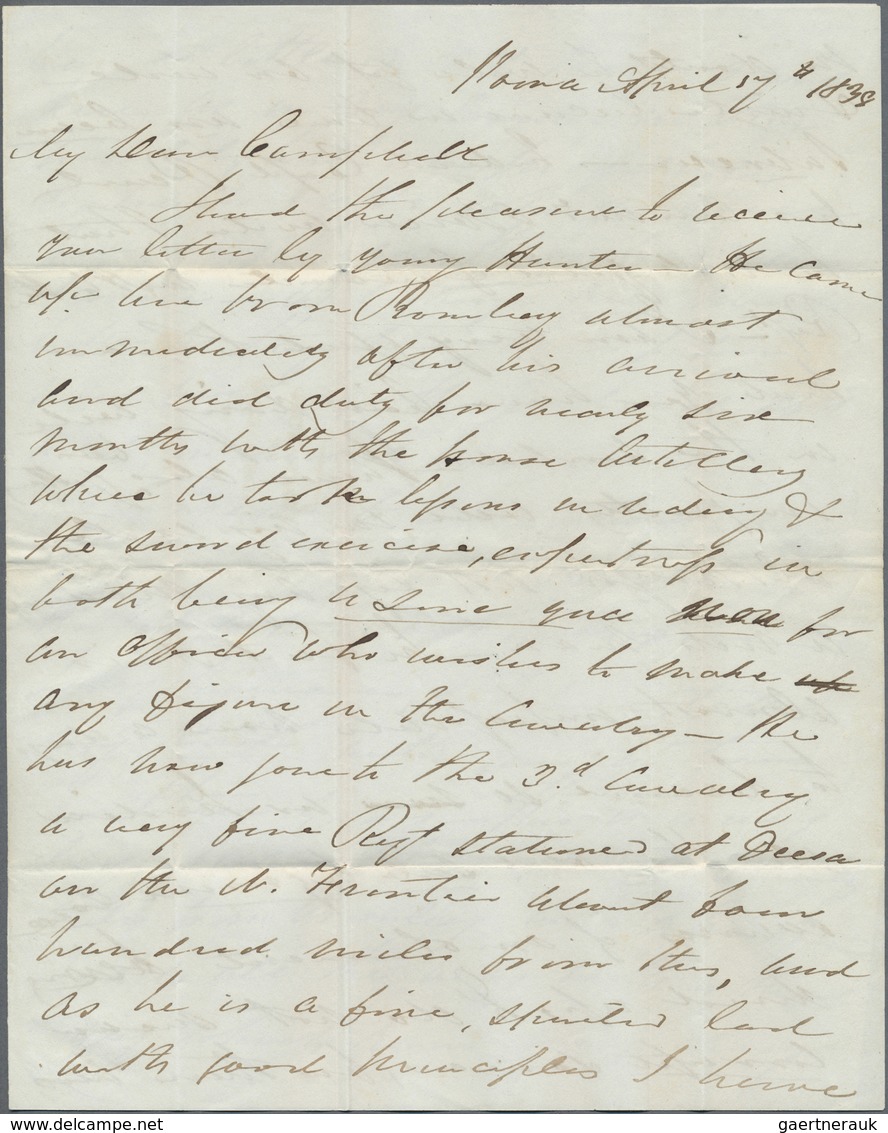 Poona April 17th 1838
My Dear Campbell
I had the pleasure to receive
your letter by young Hunter – He came
up here from Bombay almost
immediately after his arrival
and did duty for nearly six
months with the Horse Artillery
where he took lessons in riding &
the sword exercise, expertness in
both being a sine qua non for
an officer who wishes to make
any figure in the Cavalry – He
has now gone to the 3d Cavalry
a very fine Regt stationed at Deesa
on the N. Frontier about four
hundred miles from this, and
as he is a fine, spirited lad
with good principles I have
gaertnerauk
DELCAMPE.NET